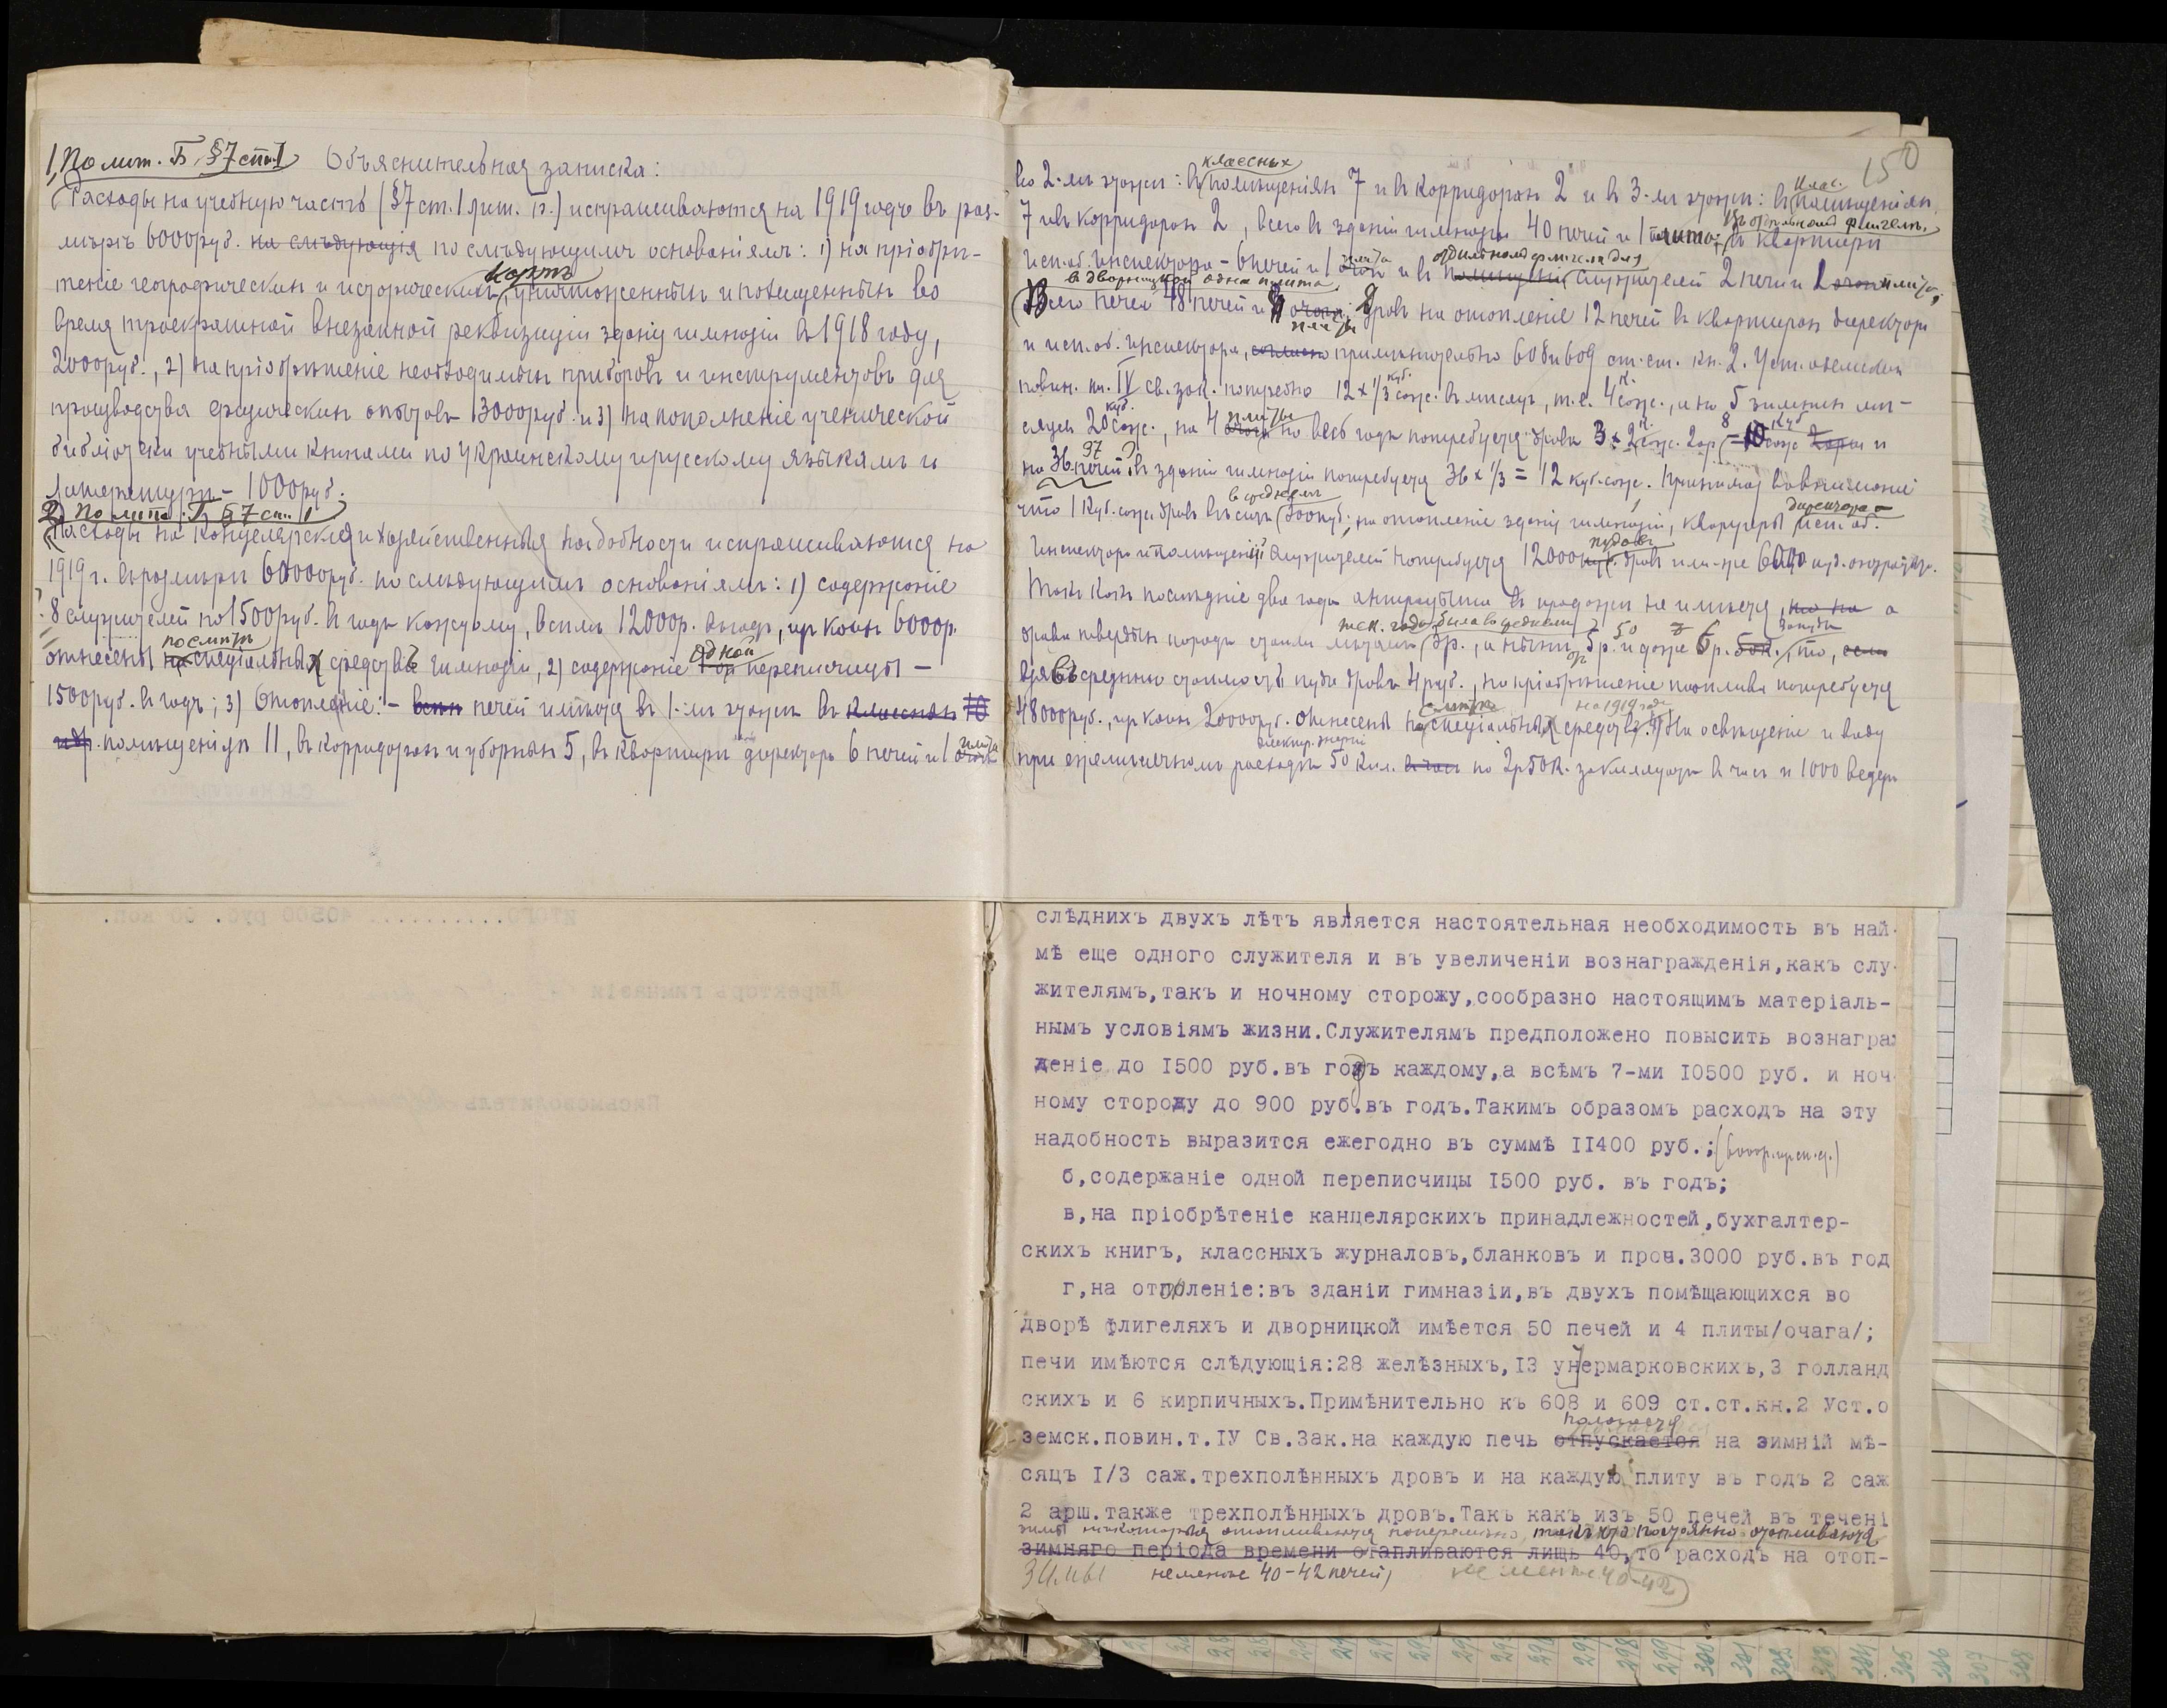 1, По лит. Б. §7 ст. 1 Объяснительная записка:
Расходы на учебную часть (§7 ст. 1 лит. Б.) испрашиваются на 1919 годъ въ раз-
мѣрѣ 6000 руб. на слѣдующія по слѣдующимъ основаніямъ: 1) на пріобрѣ-
картъ
теніе географическихъ и историческихъ, уничтоженныхъ и похищенныхъ во
время троекратной внезапной реквизиціи зданія гимназіи въ 1918 году,
2000 руб., 2) на пріобрѣтеніе необходимыхъ приборовъ и инструментовъ для
производства физическихъ опытовъ 3000 руб. и 3) на пополненіе ученической
библіотеки учебными книгами по украинскому и русскому языкамъ и
литературѣ – 1000 руб.
2) По лит. Б §7 ст. 1
Расходы на канцелярскія и хозяйственныя надобности испрашиваются на
1919 г. въ размѣрѣ 60000 руб. по слѣдующимъ основаніямъ: 1) содержаніе
8 служителей по 1500 руб. въ годъ каждому, всѣмъ 12000 р. въ годъ, изъ коихъ 6000 р.
по смѣтѣ одной
отнесены на спеціальныя средства гимназіи, 2) содержаніе переписчицы –
1500 руб. въ годъ; 3) Отопленіе: – всѣхъ печей имѣется въ 1-мъ этажѣ въ классныхъ 10
и др. помѣщеніяхъ 11, въ корридорахъ и уборныхъ 5, въ квартирѣ директора 6 печей и 1 очагъ плита
150
классныхъ клас.
во 2-мъ этажѣ: въ помѣщеніяхъ 7 и въ корридорахъ 2 и въ 3-мъ этажѣ: въ помѣщеніяхъ
въ отдѣльномъ флигелѣ
7 и въ корридорахъ 2, всего въ зданіи гимназіи 40 печей и 1 плита; въ квартирѣ
плита отдѣльномъ флигелѣ для
исп. об. инспектора – 6 печей и 1 очагъ и въ помѣщеніи служителей 2 печи и 1 очагъ плита;
въ дворницкой одна плита
Всего печей 48 печей и 4 очага плиты; Дровъ на отопленіе 12 печей въ квартирахъ директора
и исп. об. инспектора, согласно примѣнительно 608 и 609 ст. ст. кн. 2. Уст. о земскихъ
повин. т. IV св. зак. потребно 12 x 1/3 куб. саж. въ мѣсяцъ, т.е. 4 к. саж., и на 5 зимнихъ мѣ-
сяцевъ 20 куб. саж., на 4 очага плиты на весь годъ потребуется дровъ 3 x 2 к. саж. 2 ар. = 10 8 куб. саж. 2 арш. и
на 36 37 печей въ зданіи гимназіи потребуется 36 x 1/3 = 12 куб. саж. Принимая во вниманіе
въ среднемъ директора и
что 1 куб. саж. дровъ вѣситъ 300 пуд., на отопленіе зданія гимназіи, квартиры исп. об.
пудовъ
инспектора и помѣщеній служителей потребуется 12000 дровъ или-же 6000 пуд. антрацита.
Такъ какъ послѣдніе два года антрацита въ продажѣ не имѣется, но на а
тек. года была въ среднемъ
дрова
взявъ среднюю стоимость пуда дровъ 4 руб., на пріобрѣтеніе топлива потребуется
смѣтѣ на 1919 годъ
48000 руб., изъ коихъ 20000 руб. отнесены на спеціальныя средства. 4) На освѣщеніе и воду
электр. энергіи
при ежемѣсячномъ расходѣ 50 кил. въ часъ по 2 р. 50 к. за киловаттъ въ часъ и 1000 ведеръ
слѣднихъ двухъ лѣтъ является настоятельная необходимость въ най-
мѣ еще одного служителя и въ увеличеніи вознагражденія,какъ слу-
жителямъ,такъ и ночному сторожу,сообразно настоящимъ матеріаль-
нымъ условіямъ жизни.Служителямъ предположено повысить вознаграж
деніе до 1500 руб.въ годъ каждому,а всѣмъ 7-ми 10500 руб. и ноч-
ному сторожу до 900 руб.въ годъ.Такимъ образомъ расходъ на эту
надобность выразится ежегодно въ суммѣ 11400 руб.; (6000 р. из сп. ср.)
б,содержаніе одной переписчицы 1500 руб. въ годъ;
в,на пріобрѣтеніе канцелярскихъ принадлежностей,бухгалтер-
скихъ книгъ, классныхъ журналовъ,бланковъ и проч.3000 руб.въ год
г,на отопленіе:въ зданіи гимназіи,въ двухъ помѣщающихся во
дворѣ флигеляхъ и дворницкой имѣется 50 печей и 4 плиты/очага/;
печи имѣются слѣдующія:28 желѣзныхъ,13 унтермарковскихъ,3 голланд
скихъ и 6 кирпичныхъ.Примѣнительно къ 608 и 609 ст.ст.кн.2 Уст.о
полагается
земск.повин.т.IУ Св.Зак.на каждую печь отпускается на зимній мѣ-
сяцъ 1/3 саж.трехполѣнныхъ дровъ и на каждую плиту въ годъ 2 саж
2 арш.также трехполѣнныхъ дровъ.Такъ какъ изъ 50 печей въ течені
зимы нѣкоторыя отапливаются поперемѣнно, такъ что постоянно отапливаются
зимняго періода времени отапливаются лишь 40,то расходъ на отоп-
зимы не менѣе 40-42 печей, не менѣе 40-42